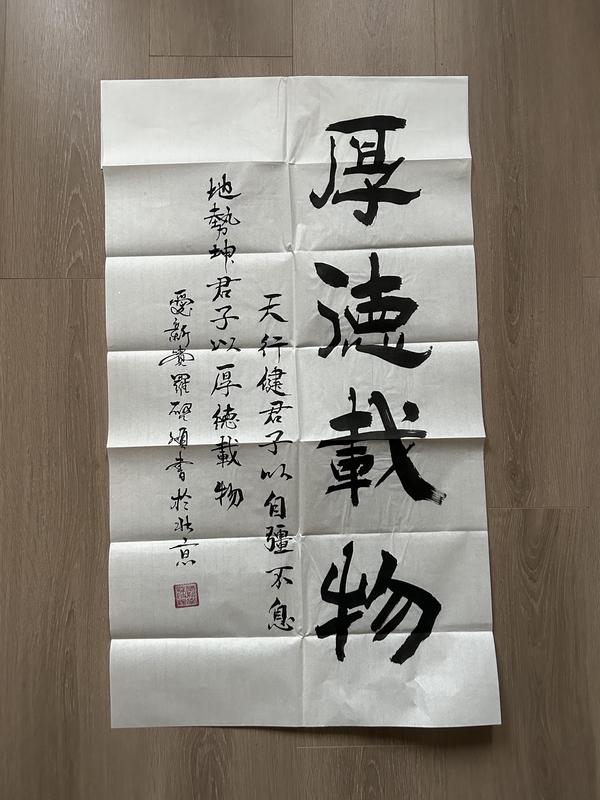 厚德載物
天行健君子以自彊不息
地勢坤君子以厚德載物
愛新覺羅書於北京